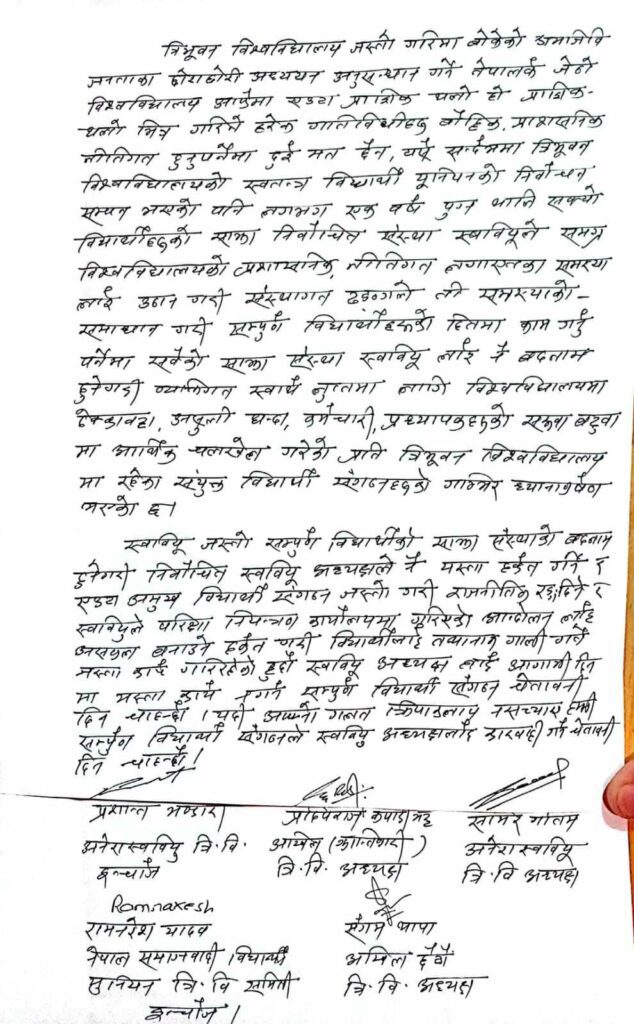 त्रिभुवन विश्वविद्यालय जस्तो गरिमा बोकेको श्रमजिवि
जनताका छोराछोरी अध्ययन अनुसन्धान गर्ने नेपालकै जेठो
विश्वविद्यालय आफैमा एउटा प्राज्ञिक थलो हो प्राज्ञिक-
थलो भित्र गरिने हरेक गतिविधीहरु बौद्धिक, प्रशासनिक
नीतिगत हुनुपर्नेमा दुई मत छैन, यसै सन्दर्भमा त्रिभुवन
विश्वविद्यालयको स्वतन्त्र विद्यार्थी यूनियनको निर्वाचन
सम्पन्न भएको पनि लगभग एक वर्ष पुग्न लागि सक्यो
विद्यार्थीहरुको साझा निर्वाचित संस्था स्ववियूले समग्र
विश्वविद्यालयको प्रशासनिक, नीतिगत लगायतका समस्या
लाई उठान गरी संस्थागत ढङगले ती समस्याको-
समाधान गरी सम्पूर्ण विद्यार्थीहरुको हितमा काम गर्नु
पर्नेमा सबैको साझा संस्था स्ववियू लाई नै बदनाम
हुनेगरी व्यक्तिगत स्वार्थ लागि विश्वविद्यालयमा
ठेक्कापट्टा, असुली धन्दा, कर्मचारी, प्रध्यापकहरुको सरुवा बढुवा
मा आर्थिक चलखेल गरेको प्रति त्रिभूवन विश्वविद्यालय
मा रहेका संयुक्त विद्यार्थी संगठनहरुको गम्भिर ध्यानाकर्षण
भएको छ।
स्ववियू जस्तो सम्पूर्ण विद्यार्थीको साझा संस्थाको बदनाम
हुनेगरी निर्वाचित स्ववियू अध्यक्षले नै यस्ता हर्कत गर्ने र
एउटा अमुख विद्यार्थी संगठन जस्तो गरी राजनीतिक रङ्ग दिने र
स्ववियुले परिक्षा नियन्त्रण कार्यालयमा गरिएको आन्दोलन लाई
असफल बनाउने हर्कत गरी विद्यार्थीलाई तथानाम गाली गर्ने
जस्ता कार्य गरिरहेको हुदाँ स्ववियू अध्यक्ष लाई आगामी दिन
मा यस्ता कार्य नगर्न सम्पूर्ण विद्यार्थी संगठन चेतावनी
दिन चाहन्छौं। यदी आफ्नो गलत क्रियाकलाप नसच्याए हामी
सम्पूर्ण विद्यार्थी संगठनले स्ववियु अध्यक्षलाई कारवाही गर्ने चेतावनी
दिन चाहन्छौं।
प्रशान्त भण्डारी
अनेरास्ववियु त्रि. वि.
इन्चार्ज
कपाडी भट्ट
अखिल (क्रान्तिकारी)
त्रि. वि अध्यक्ष
सागर गौतम
अनेरास्ववियू
त्रि. वि अध्यक्ष
Ramnaresh
रामनरेश यादव
नेपाल समाजवादी विद्यार्थी
युनियन त्रि. वि समिति
इन्चार्ज।
संगम थापा
अखिल छैठौं
त्रि. वि. अध्यक्ष